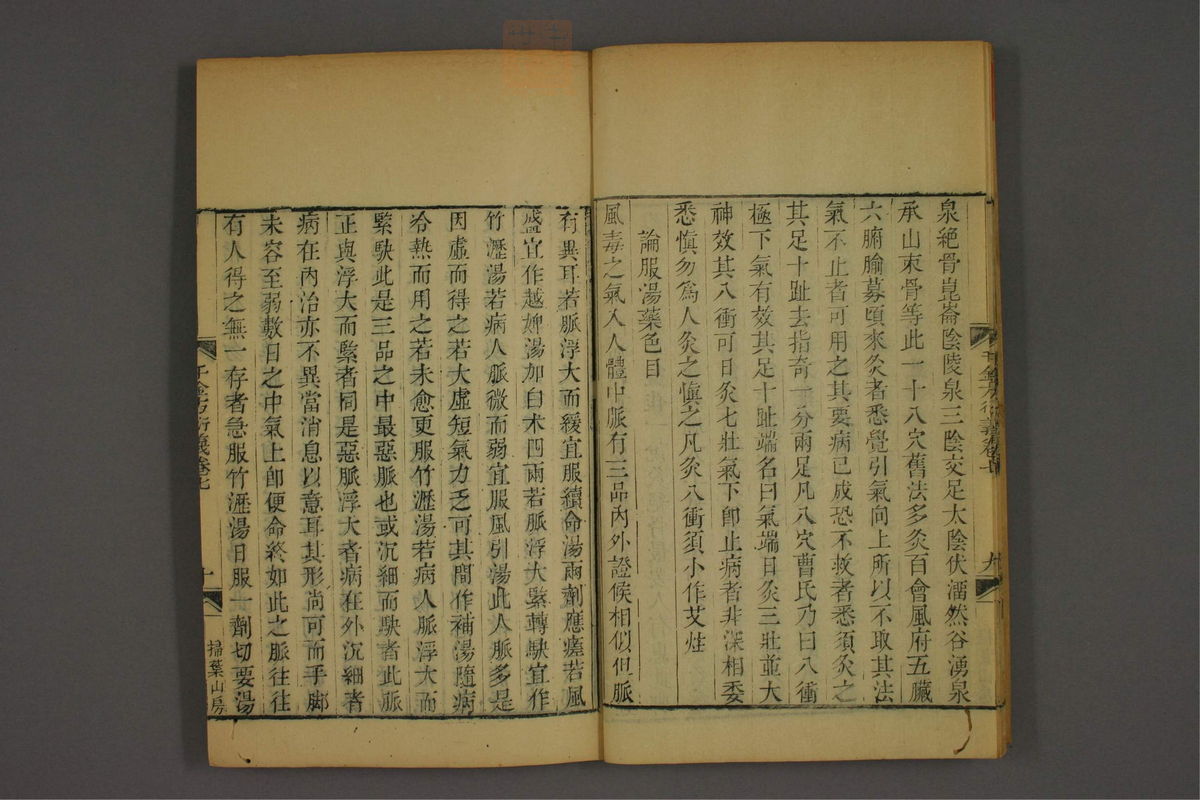 泉絶骨崑崙陰陵泉三陰交足太陰伏溜然谷湧泉
承山束骨等此一十八穴舊法多灸百會風府五臟
六腑腧募頃來灸者悉覺引氣向上所以不取其法
氣不止者可用之其要病已成恐不救者悉須灸之
其足十趾去指奇一分兩足凡八穴曹氏乃曰八衝
極下氣有效其足十趾端名曰氣端日灸三壯並大
神效其八衝可日灸七壯氣下卽止病者非深相委
悉愼勿爲人灸之愼之凡灸八衝須小作艾炷
論服湯藥色目
風毒之氣入人體中脈有三品內外證候相似但脈
有異耳若脈浮大而緩宜服續命湯兩劑應瘥若風
盛宜作越婢湯加白术四兩若脈浮大緊轉駃宜作
竹瀝湯若病人脈微而弱宜服風引湯此人脈多是
因虛而得之若大虛短氣力乏可其間作補湯隨病
冷熱而用之若未愈更服竹瀝湯若病人脈浮大而
緊駃此是三品之中最惡脈也或沉細而駃者此脈
正與浮大而緊者同是惡脈浮大者病在外沉細者
病在內治亦不異當消息以意耳其形尚可而手脚
未容至弱數日之中氣上卽便命終如此之脈往往
有人得之無一存者急服竹瀝湯日服一劑切要湯
千金方衍義卷七
十
掃葉山房